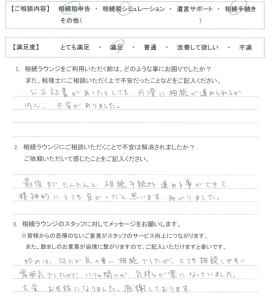 【ご相談内容】 相続税申告 ・ 相続税シミュレーション ・ 遺言サポート ・ 相続手続き
その他( )
【満足度】 とても満足 ・ 満足 ・ 普通 ・ 改善して欲しい ・ 不満
1. 相続ラウンジをご利用いただく前は、どのような事にお困りでしたか？
また、税理士にご相談いただく上で不安だったことなどをご記入ください。
公正証書があったとしても、円滑に相続が進められるか
内心、不安がありました。
2. 相続ラウンジにご相談いただくことで不安は解消されましたか？
ご依頼いただいて感じたことをご記入ください。
最後までたんたんと相続手続を進める事ができて
精神的にとても良かったと思います。助かりました。
3. 相続ラウンジのスタッフに対してメッセージをお願いします。
※皆様からの忌憚のないご意見がスタッフのサービス向上につながります。
また、励ましのお言葉が自信に繋がりますので、ご記入いただけますと幸いです。
始めは、気が重い相続でしたが、とても相談しやすい
雰囲気でしたので、いつの間にか、気持ちが楽になっていました。
大変、お世話になりました。感謝しております。